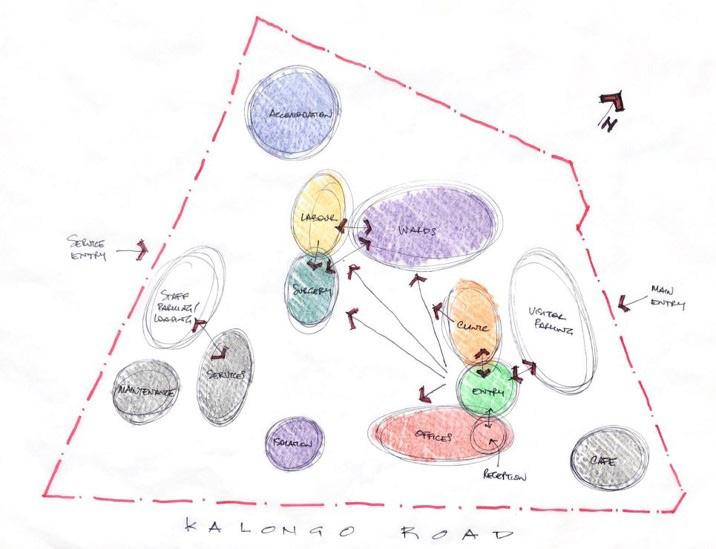 ACCOMODATION
N
LABOUR
WARDS
SERVICE
ENTRY
SURGERY
STAFF
PARKING/
LOADING
CLINIC
VISITOR
PARKING
MAIN
ENTRY
MAINTENANCE
SERVICES
ENTRY
OFFICES
ISOLATION
CAFE
RECEPTION
KALONGO ROAD